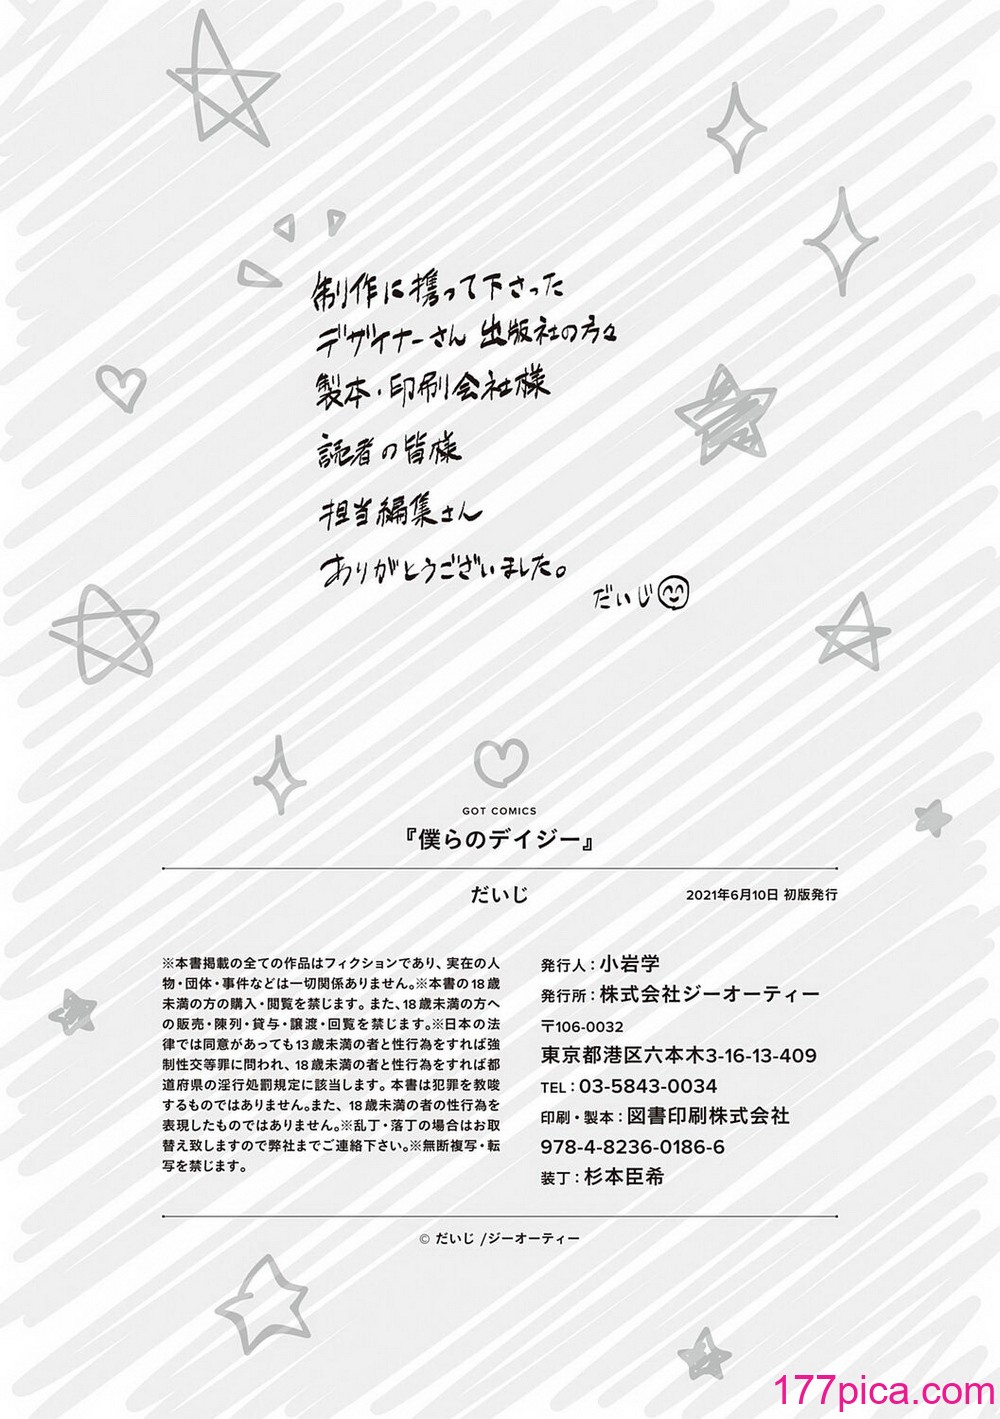 制作に携って下さった
デザイナーさん 出版社の方々
製本・印刷会社様
読者の皆様
担当編集さん
ありがとうございました。
だいじ
GOT COMICS
『僕らのデイジー』
だいじ
2021年6月10日 初版発行
※本書掲載の全ての作品はフィクションであり、実在の人
物・団体・事件などは一切関係ありません。※本書の18歳
未満の方の購入・閲覧を禁じます。また、18歳未満の方へ
の販売・陳列・貸与・譲渡・回覧を禁じます。※日本の法
律では同意があっても13歳未満の者と性行為をすれば強
制性交等罪に問われ、18歳未満の者と性行為をすれば都
道府県の淫行処罰規定に該当します。本書は犯罪を教唆
するものではありません。また、18歳未満の者の性行為を
表現したものではありません。※乱丁・落丁の場合はお取
替え致しますので弊社までご連絡下さい。※無断複写・転
写を禁じます。
発行人：小岩学
発行所：株式会社ジーオーティー
〒106-0032
東京都港区六本木3-16-13-409
TEL：03-5843-0034
印刷・製本：図書印刷株式会社
978-4-8236-0186-6
装丁：杉本臣希
© だいじ /ジーオーティー
177pica.com